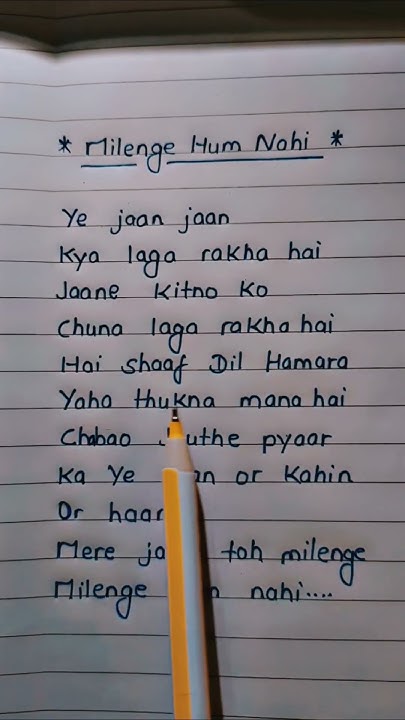 * Milenge Hum Nahi *
Ye jaan jaan
Kya laga rakha hai
Jaane kitno ko
Chuna laga rakha hai
Hai shaaf Dil Hamara
Yaha thukna mana hai
Chahao pyaar
Ka Ye or Kahin
Or
Mere toh milenge
Milenge nahi....